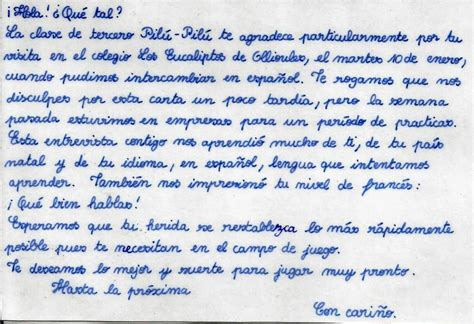 ¡Hola! ¿Qué tal?
La clase de tercero Pilú-Pilú te agradece particularmente por tu
visita en el colegio Los Eucaliptos de Ollioules, el martes 10 de enero,
cuando pudimos intercambiar en español. Te rogamos que nos
disculpes por esta carta un poco tardía, pero la semana
pasada estuvimos en empresas para un período de practicas.
Esta entrevista contigo nos aprendió mucho de ti, de tu país
natal y de tu idioma, en español, lengua que intentamos
aprender. También nos impresionó tu nivel de francés:
¡Qué bien hablas!
Esperamos que tu herida se restablezca lo más rápidamente
posible pues te necesitan en el campo de juego.
Te deseamos lo mejor y suerte para jugar muy pronto.
Hasta la próxima
Con cariño.